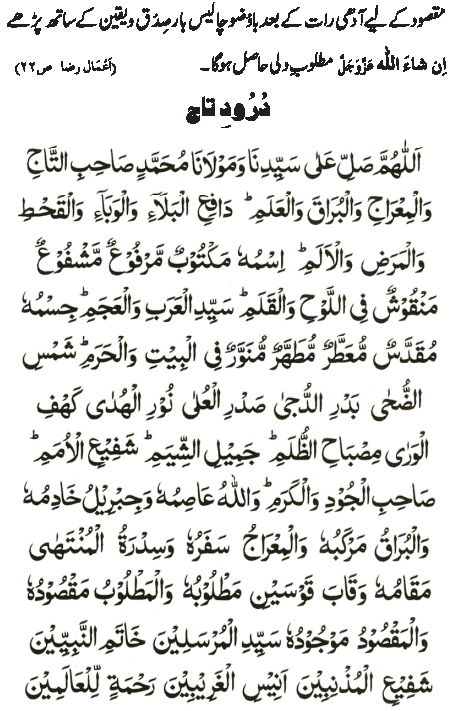 مقصود کے لیے آدھی رات کے بعد باوضو چالیس بار صِدْق ویقین کے ساتھ پڑھے
اِن شاءَ اللّٰه عَزَّوَجَلَّ مطلوبِ دلی حاصل ہوگا۔ (اَعْمَال رضا ص٢٢)
دُرُودِ تاج
اَللّٰهُمَّ صَلِّ عَلٰى سَيِّدِنَا وَمَوْلَانَا مُحَمَّدٍ صَاحِبِ التَّاجِ
وَالْمِعْرَاجِ وَالْبُرَاقِ وَالْعَلَمِ ؕ دَافِعِ الْبَلَآءِ وَالْوَبَآءِ وَالْقَحْطِ
وَالْمَرَضِ وَالْاَلَمِ ؕ اِسْمُهٗ مَكْتُوْبٌ مَّرْفُوْعٌ مَّشْفُوْعٌ
مَنْقُوْشٌ فِى اللَّوْحِ وَالْقَلَمِ ؕ سَيِّدِ الْعَرَبِ وَالْعَجَمِ ؕ جِسْمُهٗ
مُقَدَّسٌ مُّعَطَّرٌ مُّطَهَّرٌ مُّنَوَّرٌ فِى الْبَيْتِ وَالْحَرَمِ ؕ شَمْسِ
الضُّحٰى بَدْرِ الدُّجٰى صَدْرِ الْعُلٰى نُوْرِ الْهُدٰى كَهْفِ
الْوَرٰى مِصْبَاحِ الظُّلَمِ ؕ جَمِيْلِ الشِّيَمِ ؕ شَفِيْعِ الْاُمَمِ ؕ
صَاحِبِ الْجُوْدِ وَالْكَرَمِ ؕ وَاللّٰهُ عَاصِمُهٗ وَجِبْرِيْلُ خَادِمُهٗ
وَالْبُرَاقُ مَرْكَبُهٗ وَالْمِعْرَاجُ سَفَرُهٗ وَسِدْرَةُ الْمُنْتَهٰى
مَقَامُهٗ وَقَابَ قَوْسَيْنِ مَطْلُوْبُهٗ وَالْمَطْلُوْبُ مَقْصُوْدُهٗ
وَالْمَقْصُوْدُ مَوْجُوْدُهٗ سَيِّدِ الْمُرْسَلِيْنَ خَاتَمِ النَّبِيِّيْنَ
شَفِيْعِ الْمُذْنِبِيْنَ اَنِيْسِ الْغَرِيْبِيْنَ رَحْمَةٍ لِّلْعَالَمِيْنَ